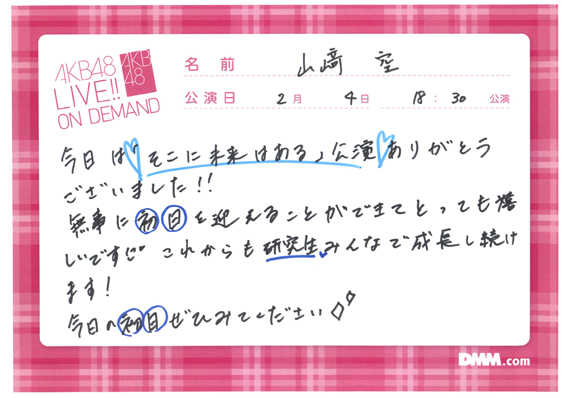 AKB48
LIVE!!
ON DEMAND
AKB
48
名前 山﨑 空
公演日 2月 4日 18:30 公演
今日は「そこに未来はある」公演ありがとう
ございました!!
無事に初日を迎えることができてとっても嬉
しいです!! これからも研究生みんなで成長し続け
ます!
今日の初日ぜひみてください
DMM.com